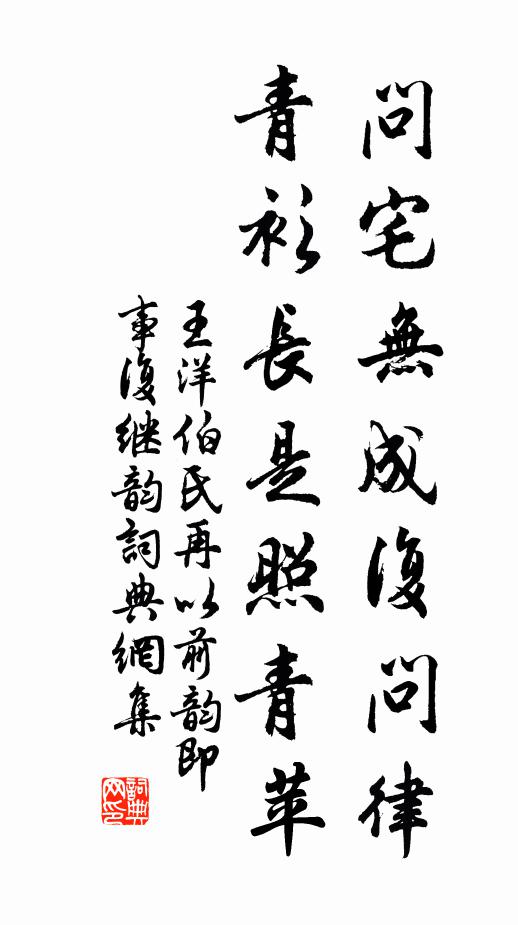 問宅無成復問律
青衫長是照青苹
王洋伯氏再以前韵即
事復继韵詞典網集
詞典网印